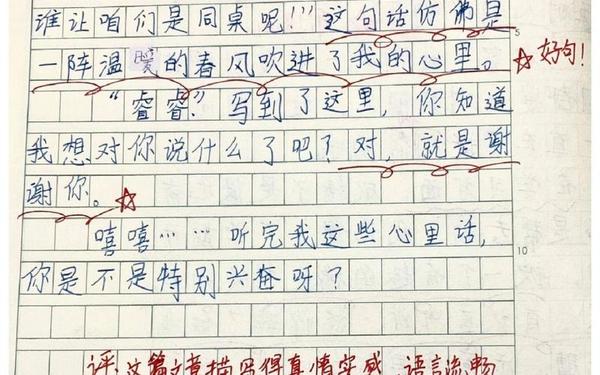 谁让咱们是同桌呢!”这句话仿佛是
一阵温暖的春风吹进了我的心里。
好句!
“睿睿”写到了这里,你知道
我想对你说什么了吧?对,就是谢
谢你。
嘻嘻……听完我这些心里话,
你是不是特别兴奋呀?
评:这篇文章描写得真情实感,语言流畅
5
10